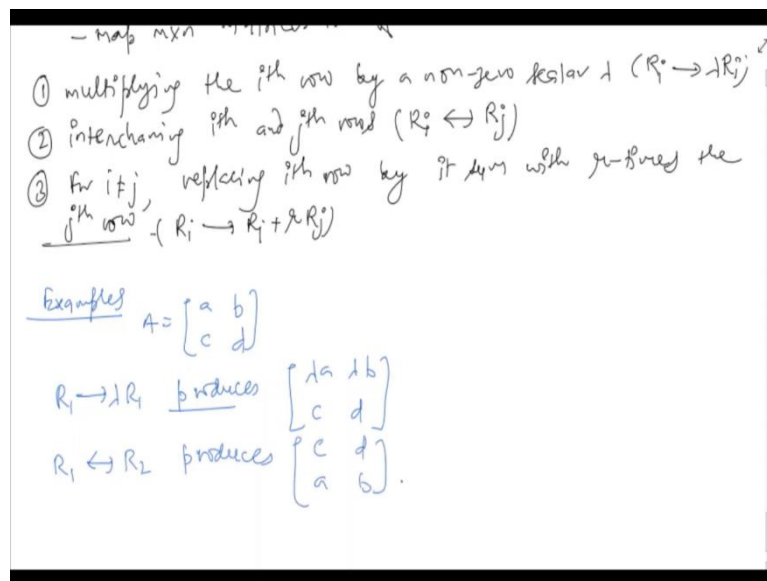 - map mxn
① multiplying the ith row by a non-zero scalar λ (Ri → λRi)
② interchaning ith and jth rows (Ri ↔ Rj)
③ For i≠j, replacing ith row by it sum with μ-times the
jth row -(Ri → Ri + μRj)
Examples A = [a b
c d]
R₁ → λR₁ produces [λa λb
c d]
R₁ ↔ R₂ produces [c d
a b].